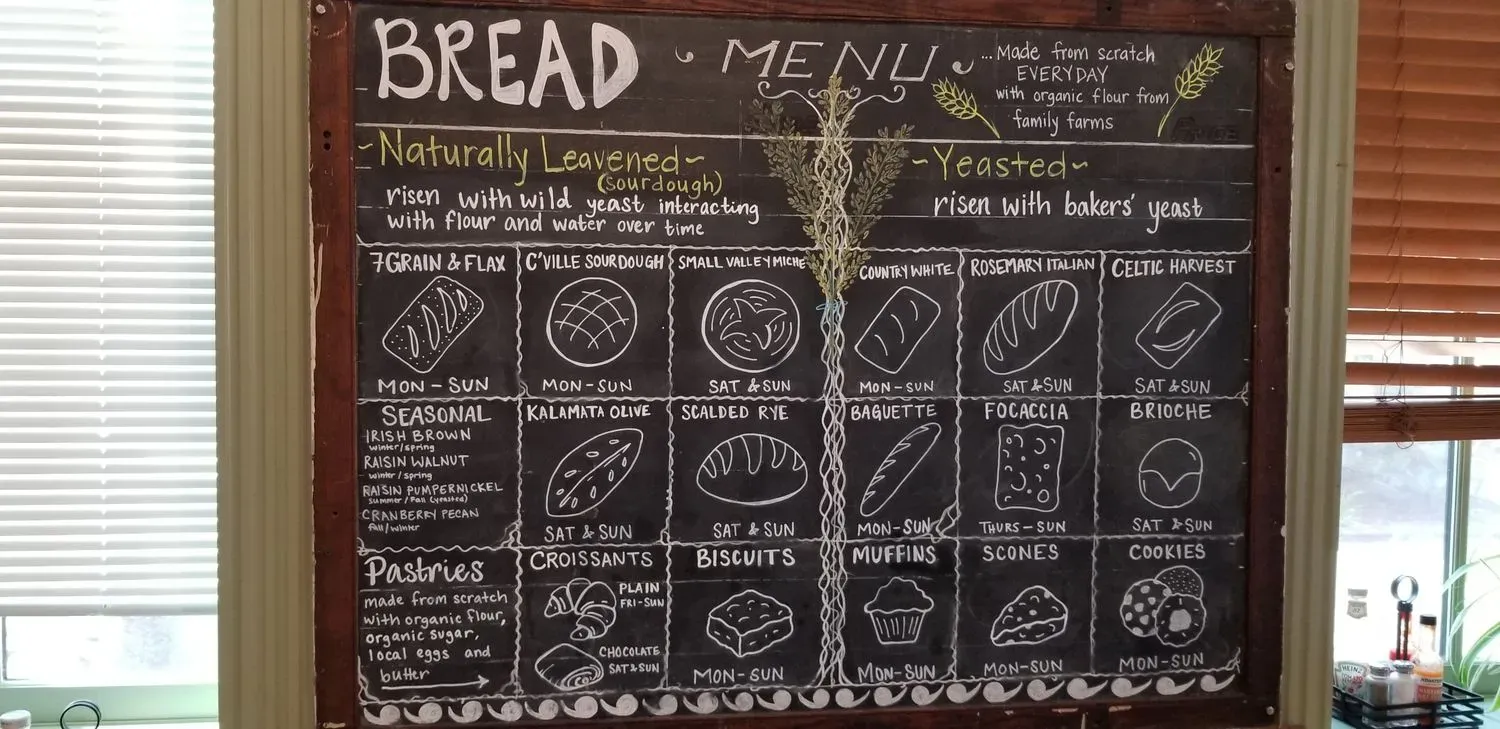 BREAD
MENU
...Made from scratch
EVERYDAY
with organic flour from
family farms
~Naturally Leavened~
(sourdough)
risen with wild yeast interacting
with flour and water over time
~Yeasted~
risen with bakers' yeast
7 GRAIN & FLAX
MON-SUN
C'VILLE SOURDOUGH
MON-SUN
SMALL VALLEY MICHE
SAT & SUN
COUNTRY WHITE
MON-SUN
ROSEMARY ITALIAN
SAT & SUN
CELTIC HARVEST
SAT & SUN
SEASONAL
IRISH BROWN
winter/spring
RAISIN WALNUT
winter/spring
RAISIN PUMPERNICKEL
summer/Fall (yeasted)
CRANBERRY PECAN
fall/winter
KALAMATA OLIVE
SAT & SUN
SCALDED RYE
SAT & SUN
BAGUETTE
MON-SUN
FOCACCIA
THURS-SUN
BRIOCHE
SAT & SUN
Pastries
made from scratch
with organic flour,
organic sugar,
local eggs and
butter
CROISSANTS
PLAIN
FRI-SUN
CHOCOLATE
SAT & SUN
BISCUITS
MON-SUN
MUFFINS
MON-SUN
SCONES
MON-SUN
COOKIES
MON-SUN
HEINZ